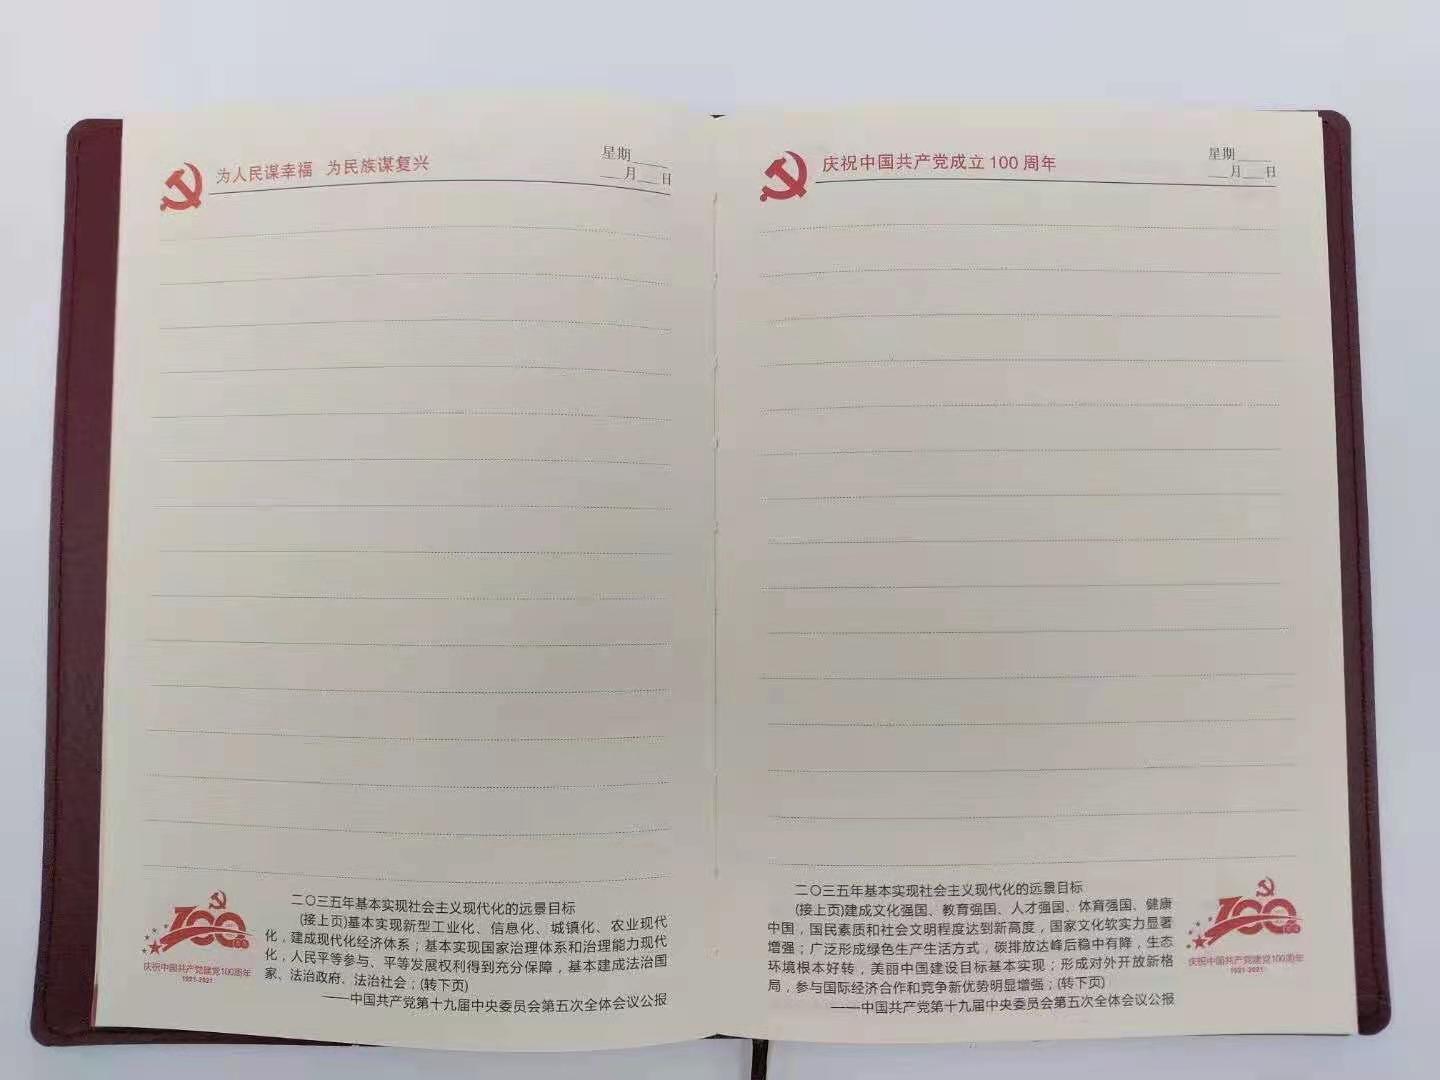 为人民谋幸福 为民族谋复兴
星期____
___月___日
二〇三五年基本实现社会主义现代化的远景目标
(接上页)基本实现新型工业化、信息化、城镇化、农业现代
化，建成现代化经济体系；基本实现国家治理体系和治理能力现代
化，人民平等参与、平等发展权利得到充分保障，基本建成法治国
家、法治政府、法治社会；(转下页)
——中国共产党第十九届中央委员会第五次全体会议公报
100周年
庆祝中国共产党建党100周年
1921-2021
庆祝中国共产党成立100周年
星期____
___月___日
二〇三五年基本实现社会主义现代化的远景目标
(接上页)建成文化强国、教育强国、人才强国、体育强国、健康
中国，国民素质和社会文明程度达到新高度，国家文化软实力显著
增强；广泛形成绿色生产生活方式，碳排放达峰后稳中有降，生态
环境根本好转，美丽中国建设目标基本实现；形成对外开放新格
局，参与国际经济合作和竞争新优势明显增强；(转下页)
——中国共产党第十九届中央委员会第五次全体会议公报
100周年
庆祝中国共产党建党100周年
1921-2021